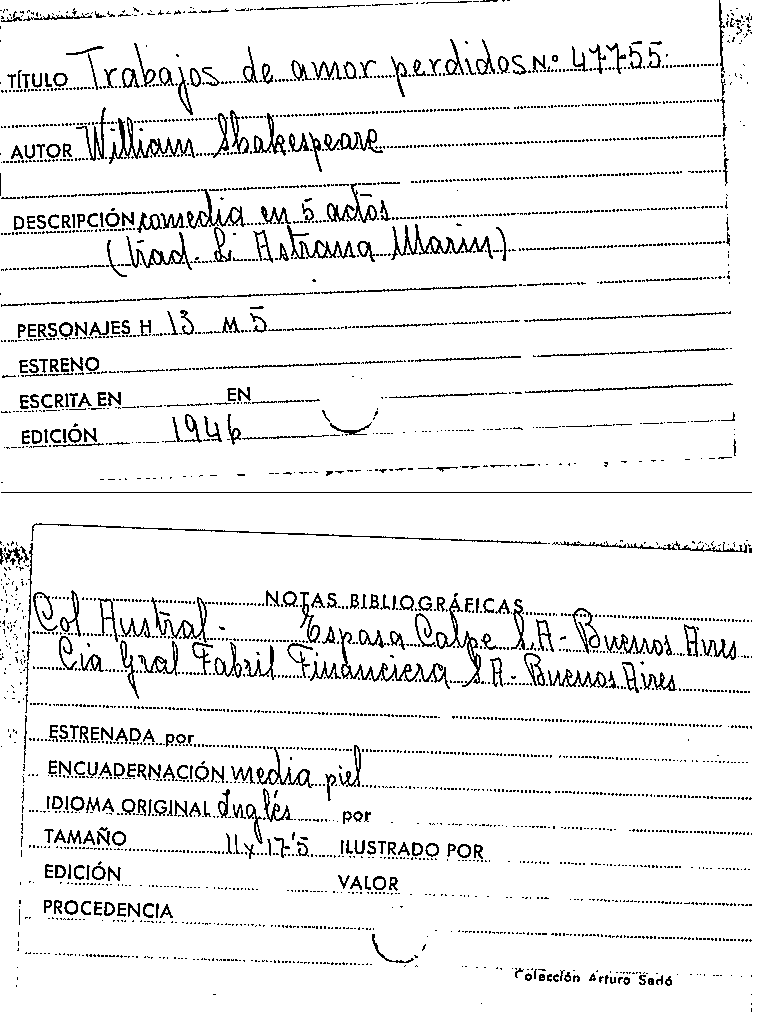 TÍTULO Trabajos de amor perdidos Nº 47755
AUTOR William Shakespeare
DESCRIPCIÓN comedia en 5 actos
(trad. L. Astrana Marin)
PERSONAJES H 13 M 5
ESTRENO
ESCRITA EN EN
EDICIÓN 1946
NOTAS BIBLIOGRÁFICAS
Col Austral. Espasa Calpe S.A - Buenos Aires
Cia Gral Fabril Financiera S A - Buenos Aires
ESTRENADA por
ENCUADERNACIÓN media piel
IDIOMA ORIGINAL Inglés por
TAMAÑO 11x17'5 ILUSTRADO POR
EDICIÓN VALOR
PROCEDENCIA
Colección Arturo Sedó